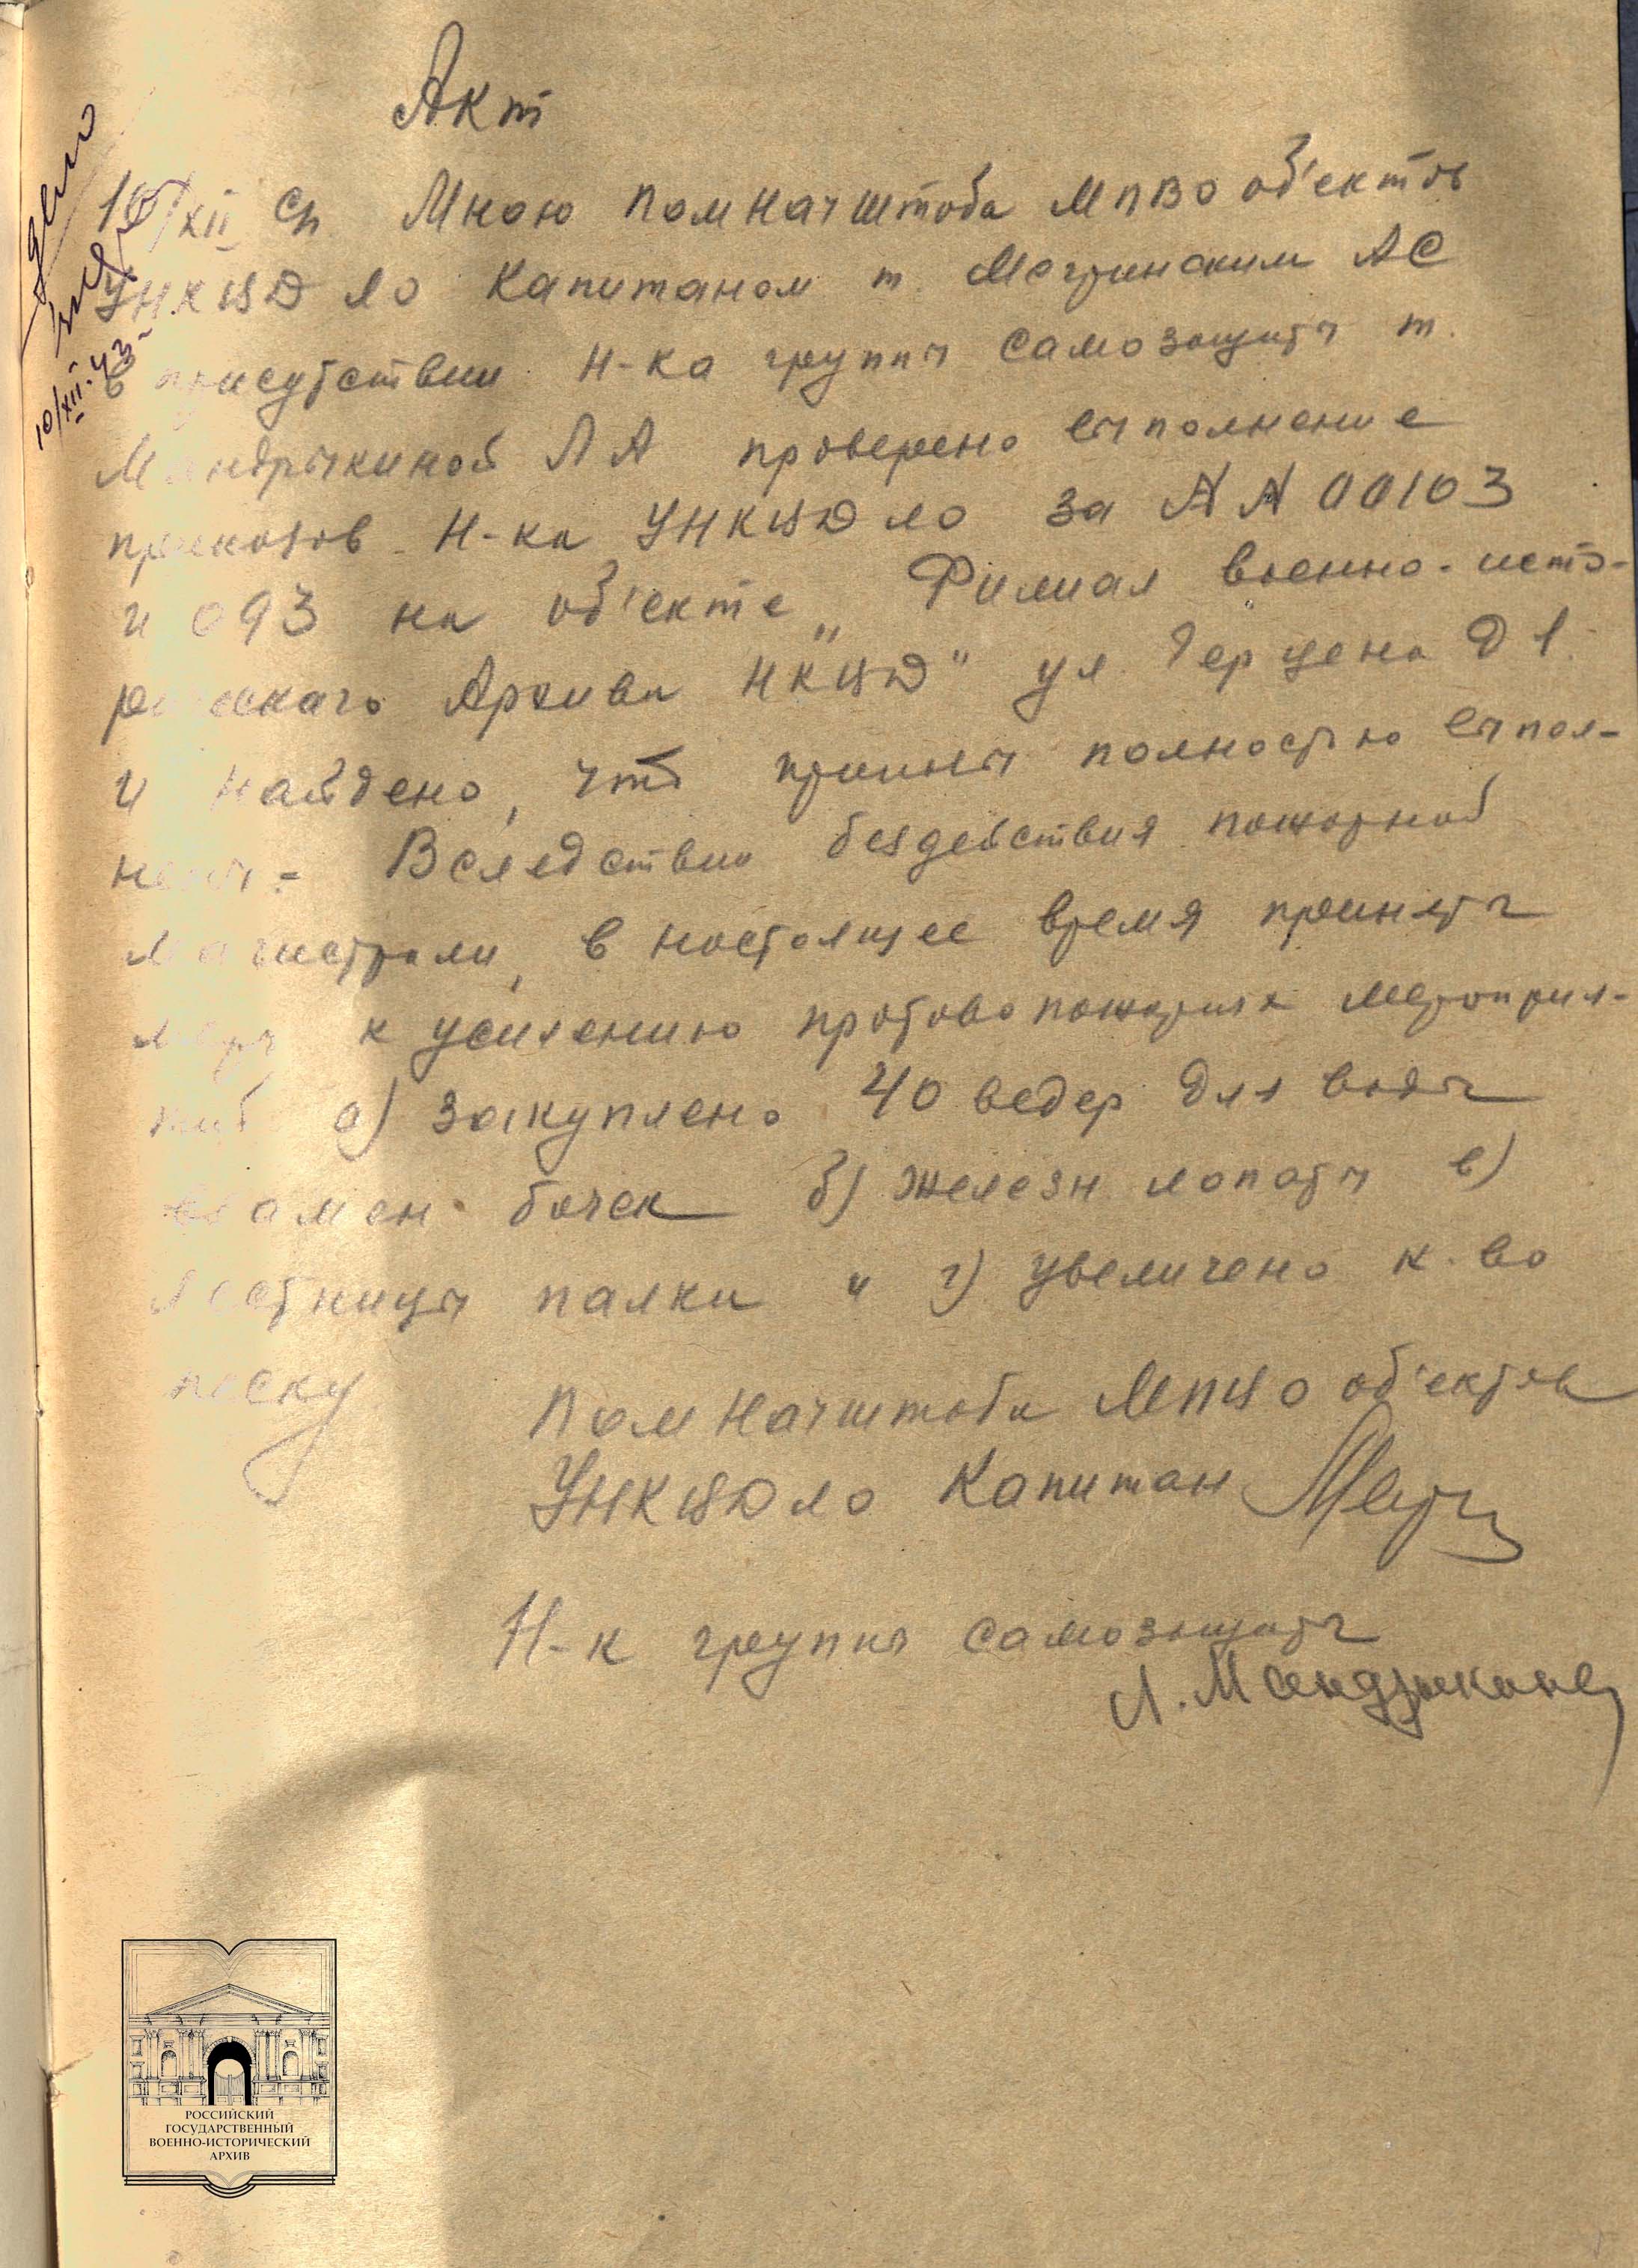 Акт
10/XII с/г Мною Помначштаба МПВО об'ектов
УНКВД ЛО Капитаном т. АС
в присутствии Н-ка группы самозащиты т.
Мандрыкиной ЛА проверено выполнение
приказов Н-ка УНКВД ЛО за NN 00103
и 093 на об'екте „Филиал военно-исто-
рического Архива НКВД" ул. Герцена д 1.
и найдено, что полностью выпол-
нены. - Вследствии бездействия пожарной
магистрали, в настоящее время приняты
меры к усилению противопожарных мероприя-
тий а) закуплено 40 ведер для воды
взамен бочек б) железн лопаты в)
лестницы палки " г) увеличено к-во
песку
Пом Начштаба МПВО об'ектов
УНКВД ЛО Капитан
Н-к группы самозащиты
Л. Мандрыкина
10/XII.43
РОССИЙСКИЙ
ГОСУДАРСТВЕННЫЙ
ВОЕННО-ИСТОРИЧЕСКИЙ
АРХИВ